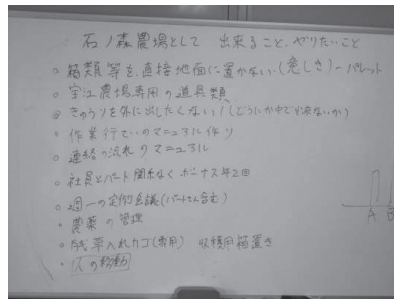 石ノ森農場として 出来ること、やりたいこと
○ 箱類等を、直接地面に置かない(悪しき)ーパレット
○ 宇江農場専用の道具類
○ きゅうりを外に出したくない!(どうにか中で出来ないか)
○ 作業行でいのマニュアル作り
○ 連絡の流れのマニュアル
○ 社員とパート関係なくボーナス年2回
○ 週一の定例会議(パートさん含む)
○ 農薬の管理
○ 残草入れカゴ(専用) 収穫用箱置き
○ 人の移動
A B